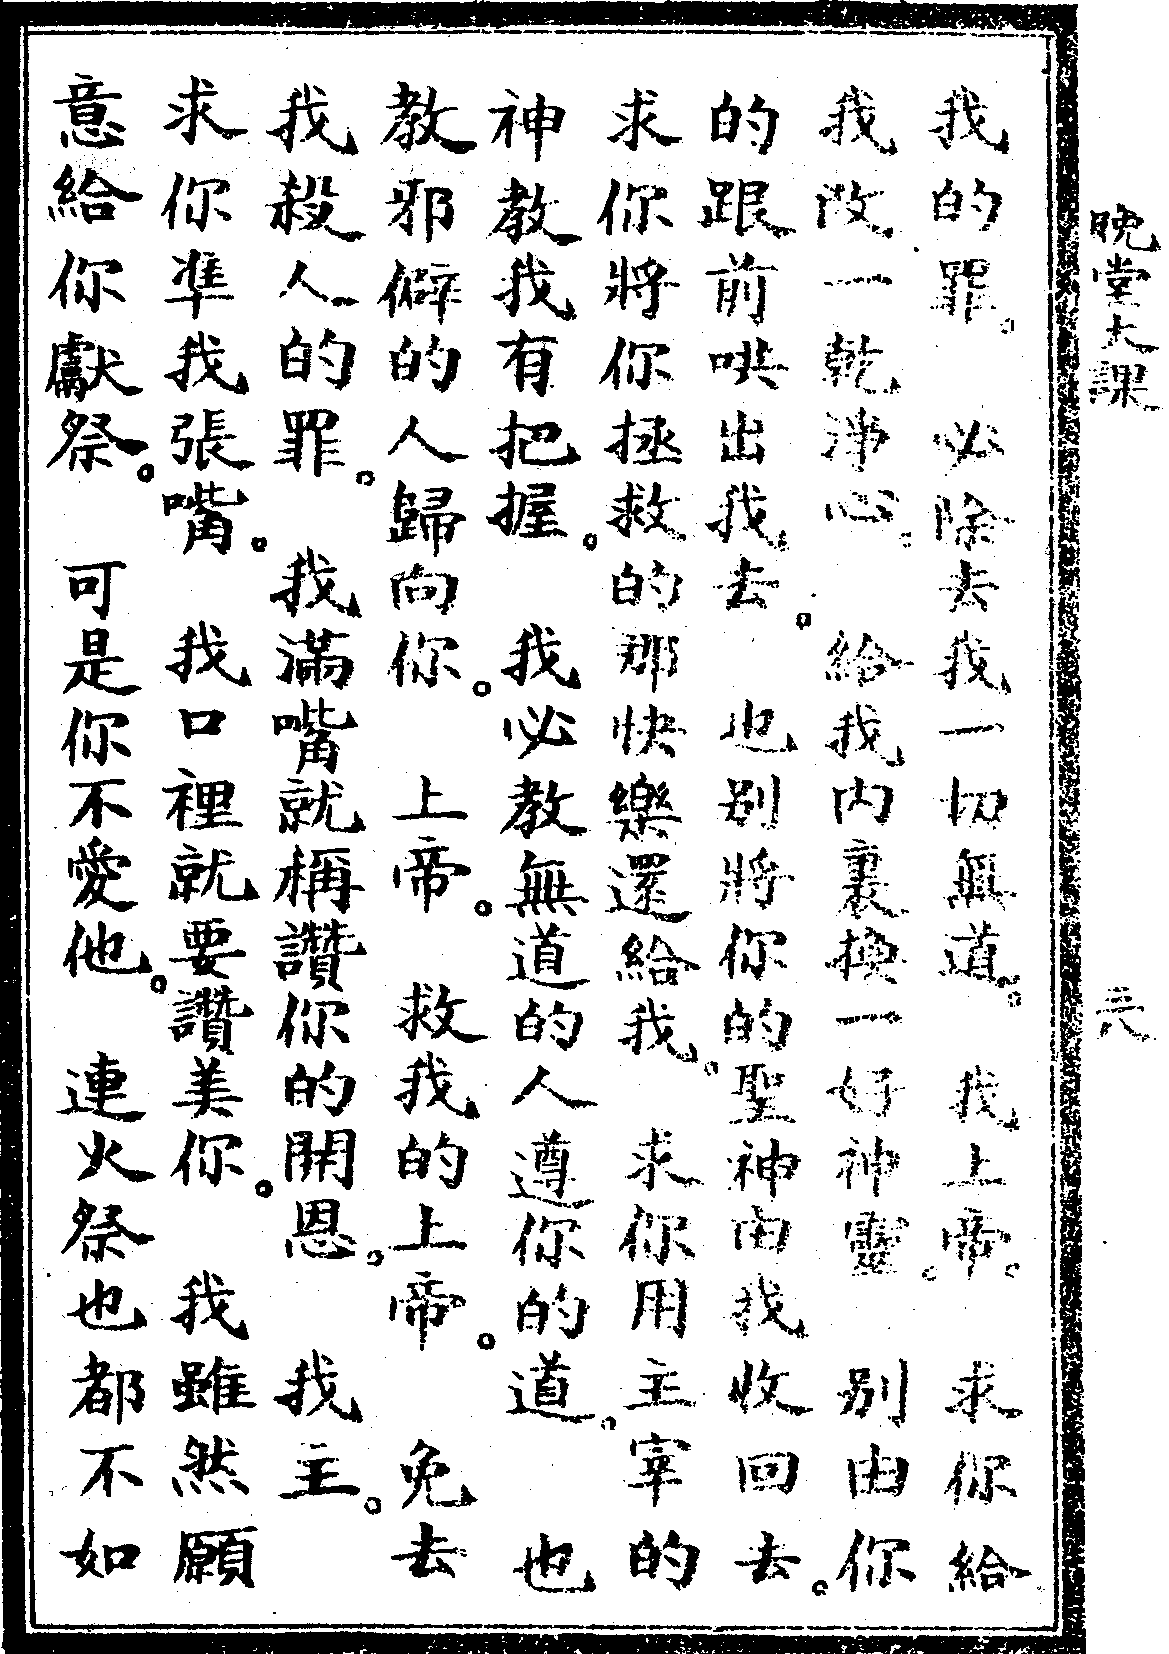 晚堂大課
我的罪。必除去我一切無道。我上帝。求你給
我改一乾淨心。給我內裏換一好神靈。別由你
的跟前哄出我去。也別將你的聖神由我收回去。
求你將你拯救的那快樂還給我。求你用主宰的
神教我有把握。我必教無道的人遵你的道。也
教邪僻的人歸向你。上帝。救我的上帝。免去
我殺人的罪。我滿嘴就稱讚你的開恩。我主。
求你準我張嘴。我口裡就要讚美你。我雖然願
意給你獻祭。可是你不愛他。連火祭也都不如